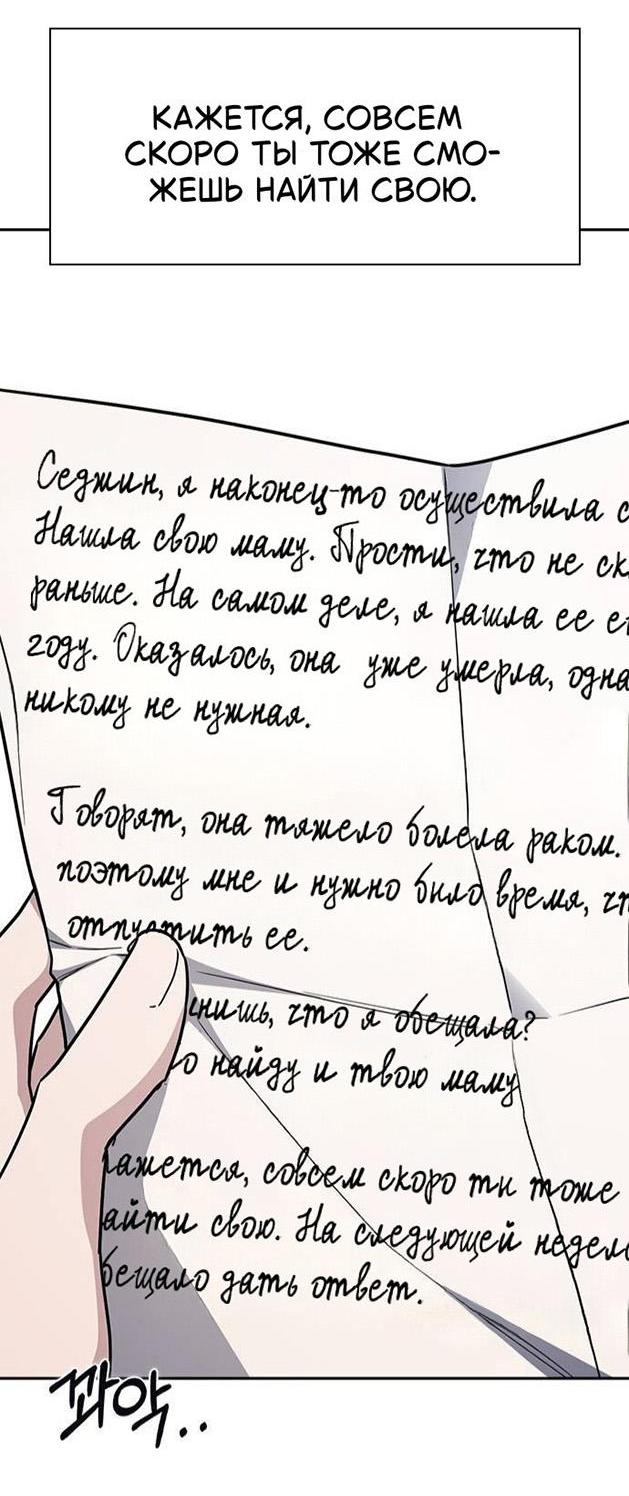 КАЖЕТСЯ, СОВСЕМ
СКОРО ТЫ ТОЖЕ СМО-
ЖЕШЬ НАЙТИ СВОЮ.
Седжин, я наконец-то осуществила с
Нашла свою маму. Прости, что не ск
раньше. На самом деле, я нашла ее е
году. Оказалось, она уже умерла, одна
никому не нужная.
Говорят, она тяжело болела раком.
поэтому мне и нужно было время, чт
отпустить ее.
нишь, что я обещала?
о найду и твою маму
Кажется, совсем скоро ты тоже
айти свою. На следующей недел
бещало дать ответ.
꽈악..